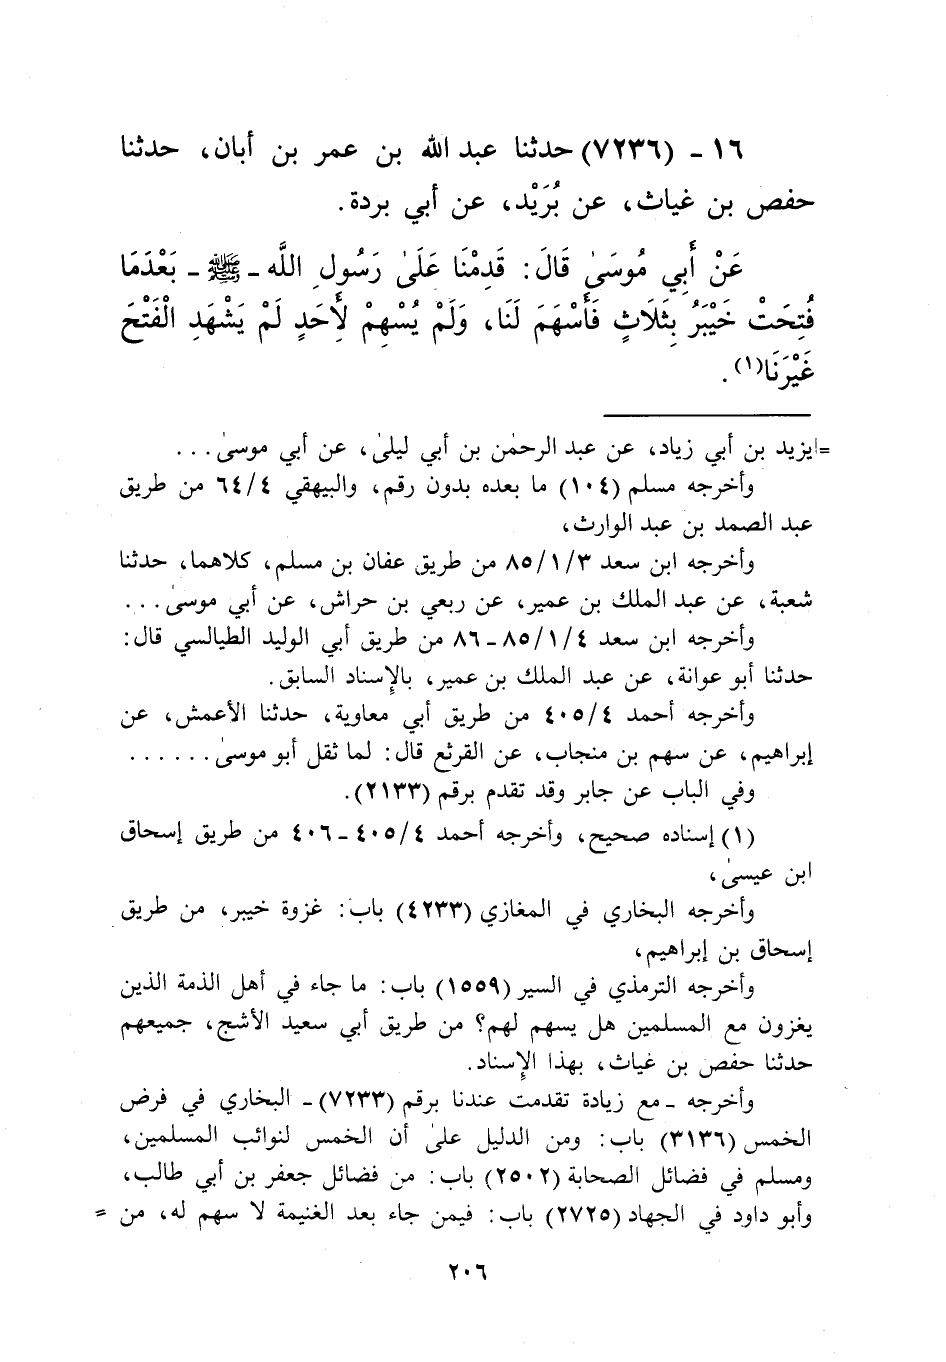 ١٦ ـ (٧٢٣٦) حدثنا عبد الله بن عمر بن أبان، حدثنا
حفص بن غياث، عن بُرَيْد، عن أبي بردة.
عَنْ أَبِي مُوسَىٰ قَالَ: قَدِمْنَا عَلَىٰ رَسُولِ اللَّه ـ ﷺ ـ بَعْدَمَا
فُتِحَتْ خَيْبَرُ بِثَلَاثٍ فَأَسْهَمَ لَنَا، وَلَمْ يُسْهِمْ لِأَحَدٍ لَمْ يَشْهَدِ الْفَتْحَ
غَيْرَنَا(١).
=ايزيد بن أبي زياد، عن عبد الرحمٰن بن أبي ليلىٰ، عن أبي موسىٰ...
وأخرجه مسلم (١٠٤) ما بعده بدون رقم، والبيهقي ٦٤/٤ من طريق
عبد الصمد بن عبد الوارث،
وأخرجه ابن سعد ٨٥/١/٣ من طريق عفان بن مسلم، كلاهما، حدثنا
شعبة، عن عبد الملك بن عمير، عن ربعي بن حراش، عن أبي موسىٰ...
وأخرجه ابن سعد ٨٥/١/٤ ـ ٨٦ من طريق أبي الوليد الطيالسي قال:
حدثنا أبو عوانة، عن عبد الملك بن عمير، بالإسناد السابق.
وأخرجه أحمد ٤٠٥/٤ من طريق أبي معاوية، حدثنا الأعمش، عن
إبراهيم، عن سهم بن منجاب، عن القرثع قال: لما ثقل أبو موسىٰ......
وفي الباب عن جابر وقد تقدم برقم (٢١٣٣).
(١) إسناده صحيح، وأخرجه أحمد ٤٠٥/٤ ـ ٤٠٦ من طريق إسحاق
ابن عيسىٰ،
وأخرجه البخاري في المغازي (٤٢٣٣) باب: غزوة خيبر، من طريق
إسحاق بن إبراهيم،
وأخرجه الترمذي في السير (١٥٥٩) باب: ما جاء في أهل الذمة الذين
يغزون مع المسلمين هل يسهم لهم؟ من طريق أبي سعيد الأشج، جميعهم
حدثنا حفص بن غياث، بهذا الإسناد.
وأخرجه ـ مع زيادة تقدمت عندنا برقم (٧٢٣٣) ـ البخاري في فرض
الخمس (٣١٣٦) باب: ومن الدليل علىٰ أن الخمس لنوائب المسلمين،
ومسلم في فضائل الصحابة (٢٥٠٢) باب: من فضائل جعفر بن أبي طالب،
وأبو داود في الجهاد (٢٧٢٥) باب: فيمن جاء بعد الغنيمة لا سهم له، من =
٢٠٦